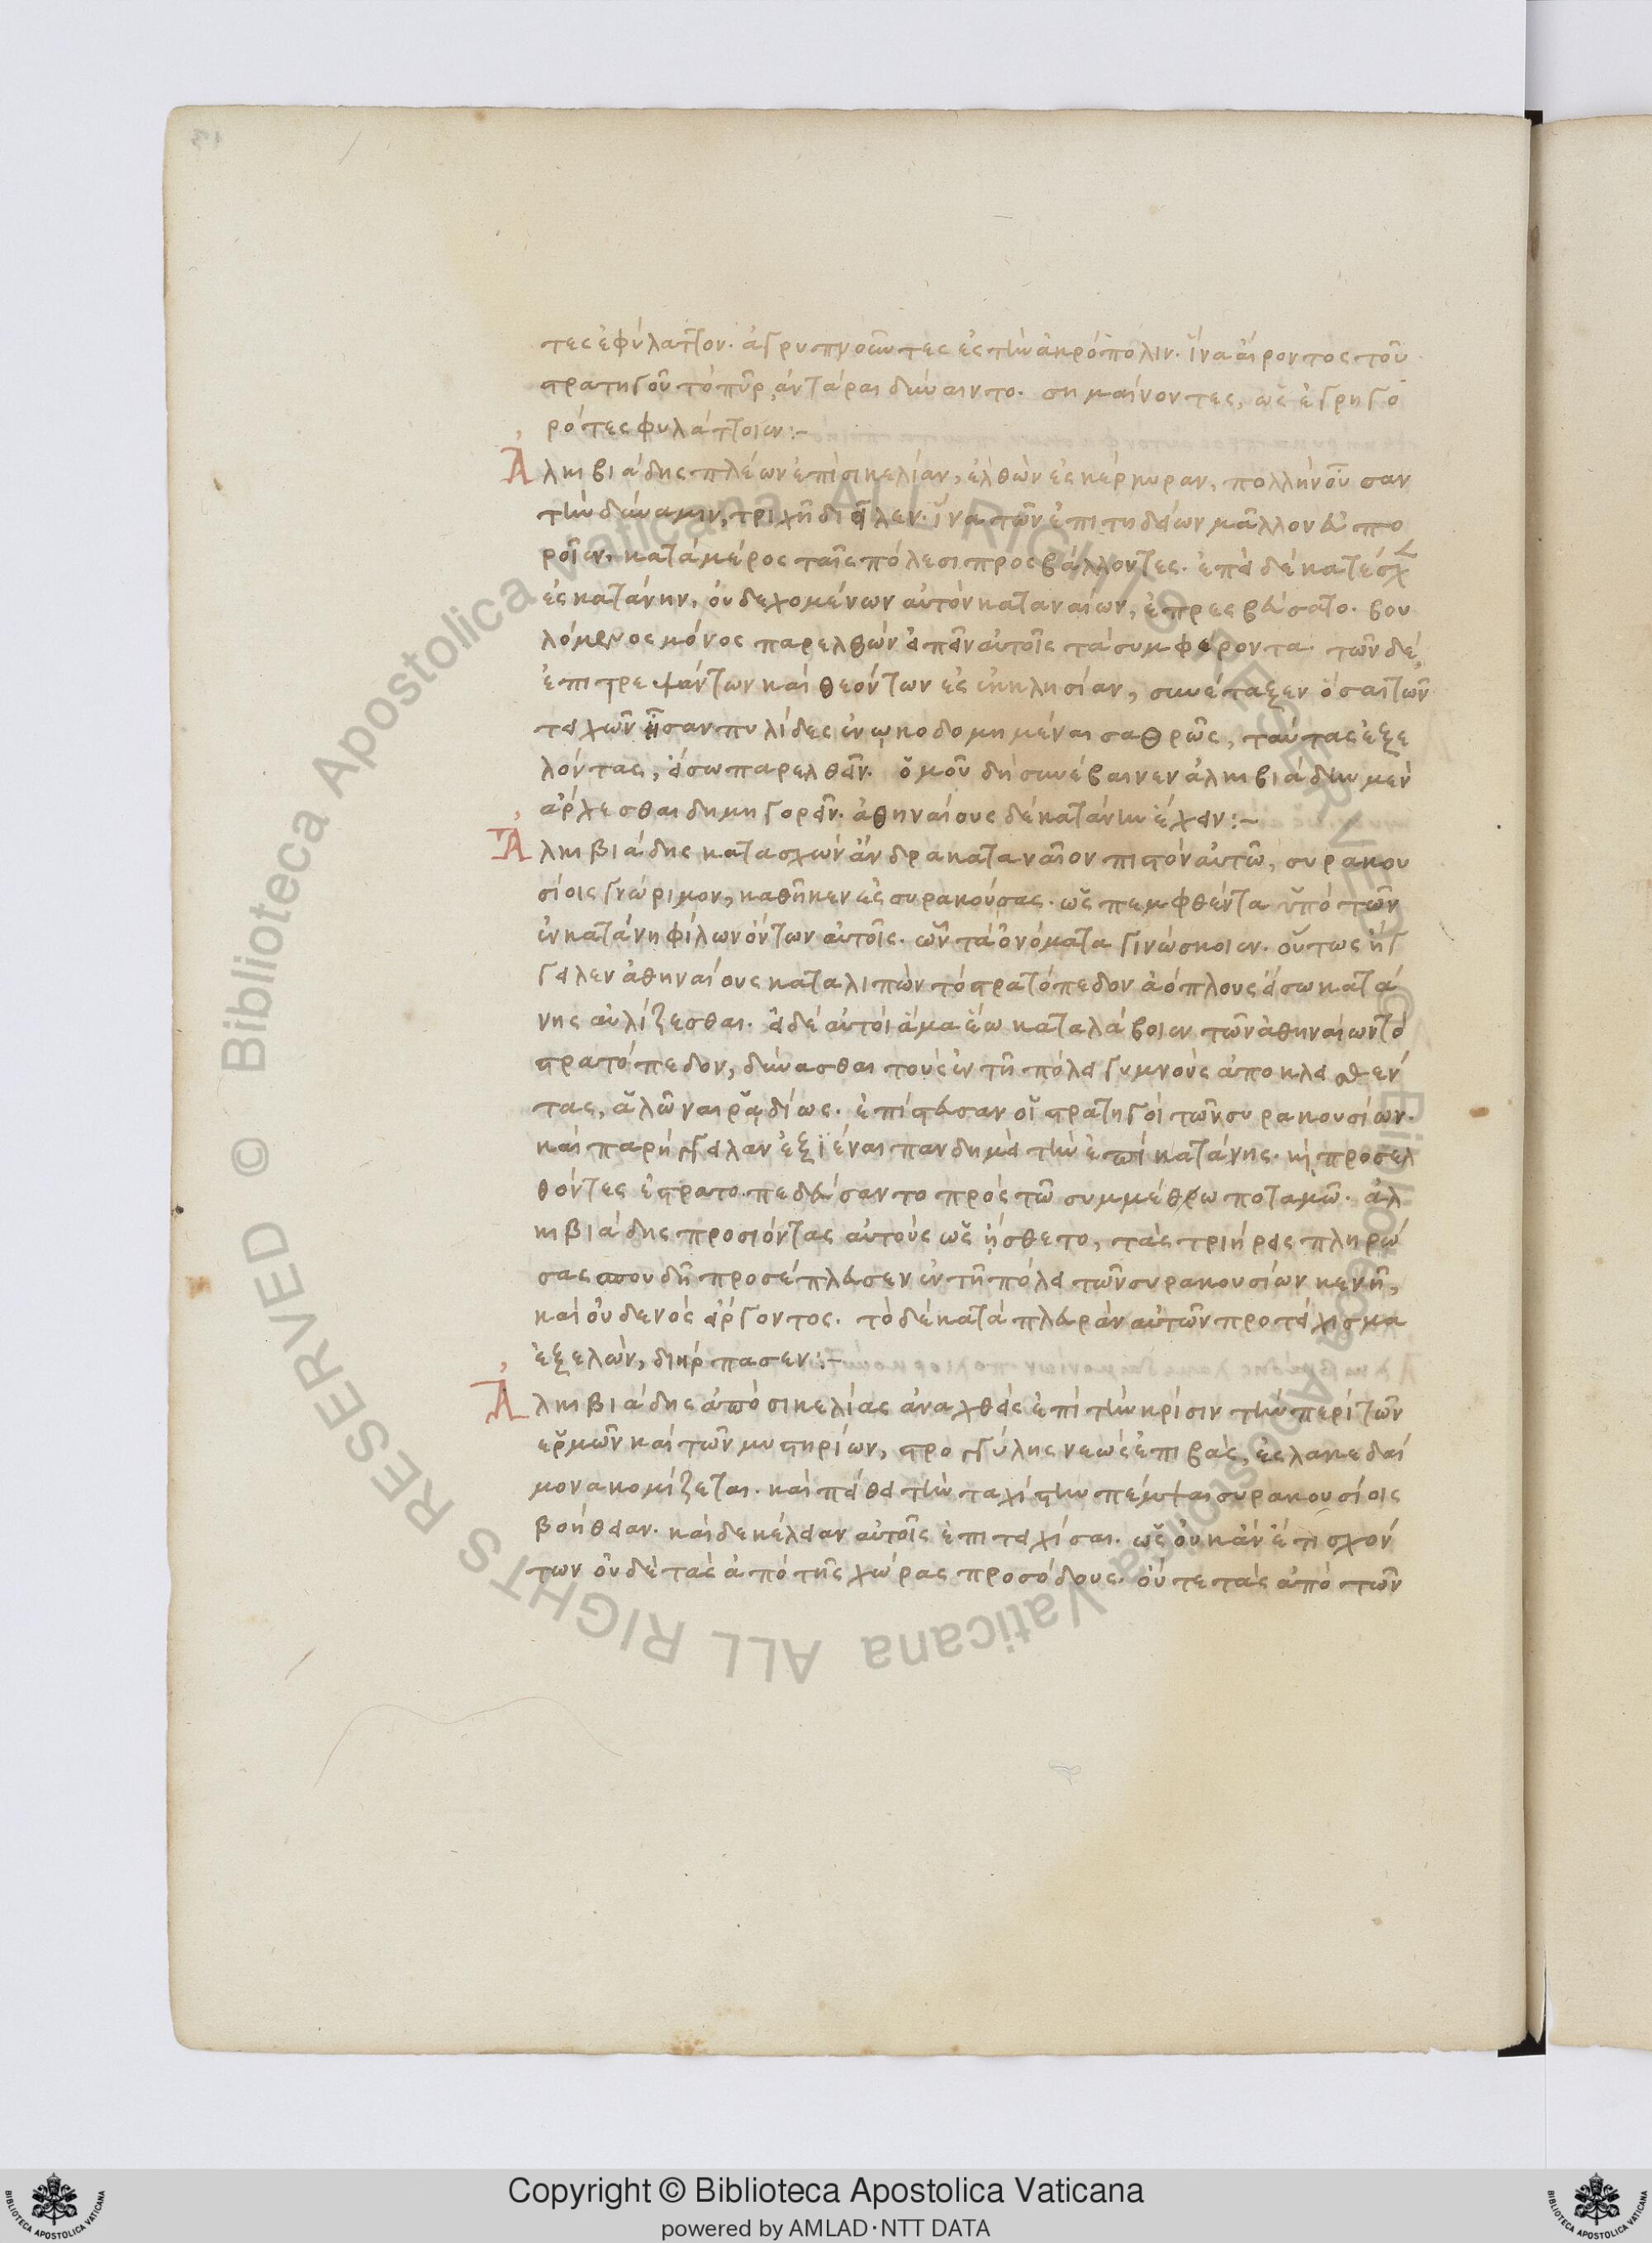 τες ἐφύλαττον. ἀγρυπνοῦντες ἐς τὴν ἀκρόπολιν. ἵνα αἴροντος τοῦ
στρατηγοῦ τὸ πῦρ, ἀνταίραι δύναιντο. σημαίνοντες, ὡς ἐγρηγο
ρότες φυλάττοιεν:-
Ἀλκιβιάδης πλέων ἐπὶ σικελίαν, ἐλθὼν ἐς κέρκυραν, πολλὴν οὖσαν
τὴν δύναμιν, τριχῆ διεῖλεν. ἵνα τῶν ἐπιτηδείων μᾶλλον εὐπο
ροῖεν. κατὰ μέρος ταῖς πόλεσι προσβάλλοντες. ἐπεὶ δὲ κατέσχ
ἐς κατάνην, οὐ δεχομένων αὐτὸν καταναίων, ἐπρεσβεύσατο. βου
λόμενος μόνος παρελθὼν εἰπεῖν αὐτοῖς τὰ συμφέροντα. τῶν δὲ,
ἐπιτρεψάντων καὶ θεόντων ἐς ἐκκλησίαν, συνέταξεν ὅσαι τῶν
τειχῶν ἦσαν πυλίδες ἐνῳκοδομημέναι σαθρῶς, ταύτας ἐξε
λόντας, εἴσω παρελθεῖν. ὁμοῦ δὴ συνέβαινεν ἀλκιβιάδην μὲν
ἄρχεσθαι δημηγορεῖν. ἀθηναίους δὲ κατάνην ἔχειν:-
Ἀλκιβιάδης κατασχὼν ἄνδρα καταναῖον πιστὸν αὐτῶ, συρακου
σίοις γνώριμον, καθῆκεν ἐς συρακούσας. ὡς πεμφθέντα ὑπὸ τῶν
ἐν κατάνη φίλων ὄντων αὐτοῖς. ὧν τὰ ὀνόματα γινώσκοιεν. οὗτος ἤγ
γειλεν ἀθηναίους καταλιπὼν τὸ στρατόπεδον ἀόπλους εἴσω κατά
νης αὐλίζεσθαι. εἰ δὲ αὐτοὶ ἅμα ἕω καταλάβοιεν τῶν ἀθηναίων τὸ
στρατόπεδον, δύνασθαι τοὺς ἐν τῆ πόλει γυμνοὺς ἀποκλεισθέν
τας, ἁλῶναι ῥαδίως. ἐπίστευσαν οἱ στρατηγοὶ τῶν συρακουσίων.
καὶ παρήγγειλαν ἐξϊέναι πανδημεὶ τὴν ἐπὶ κατάνης. καὶ προσελ
θόντες ἐστρατοπεδεύσαντο πρὸς τῶ συμμέθρω ποταμῶ. ἀλ
κιβιάδης προσιόντας αὐτοὺς ὡς ἤσθετο, τὰς τριήρεις πληρώ
σας σπουδῆ προσέπλευσεν ἐν τῆ πόλει τῶν συρακουσίων κενῆ,
καὶ οὐδενὸς εἴργοντος. τὸ δὲ κατὰ πλευρὰν αὐτῶν προτείχισμα
ἐξελὼν, διήρπασεν:-
Ἀλκιβιάδης ἀπὸ σικελίας ἀναχθεὶς ἐπὶ τὴν κρίσιν τὴν περὶ τῶν
ἑρμῶν καὶ τῶν μυστηρίων, στρογγύλης νεὼς ἐπιβὰς, ἐς λακεδαί
μονα κομίζεται. καὶ πείθει τὴν ταχίστην πέμψαι συρακουσίοις
βοήθειαν. καὶ δεκέλειαν αὐτοῖς ἐπιτειχίσαι. ὡς οὐκ ἂν ἔτι σχόν
των οὐδὲ τὰς ἀπὸ τῆς χώρας προσόδους. οὔτε τὰς ἀπὸ τῶν
© Biblioteca Apostolica Vaticana ALL RIGHTS RESERVED
© Biblioteca Apostolica Vaticana ALL RIGHTS RESERVED
Copyright © Biblioteca Apostolica Vaticana
powered by AMLAD·NTT DATA
BIBLIOTECA APOSTOLICA VATICANA
BIBLIOTECA APOSTOLICA VATICANA